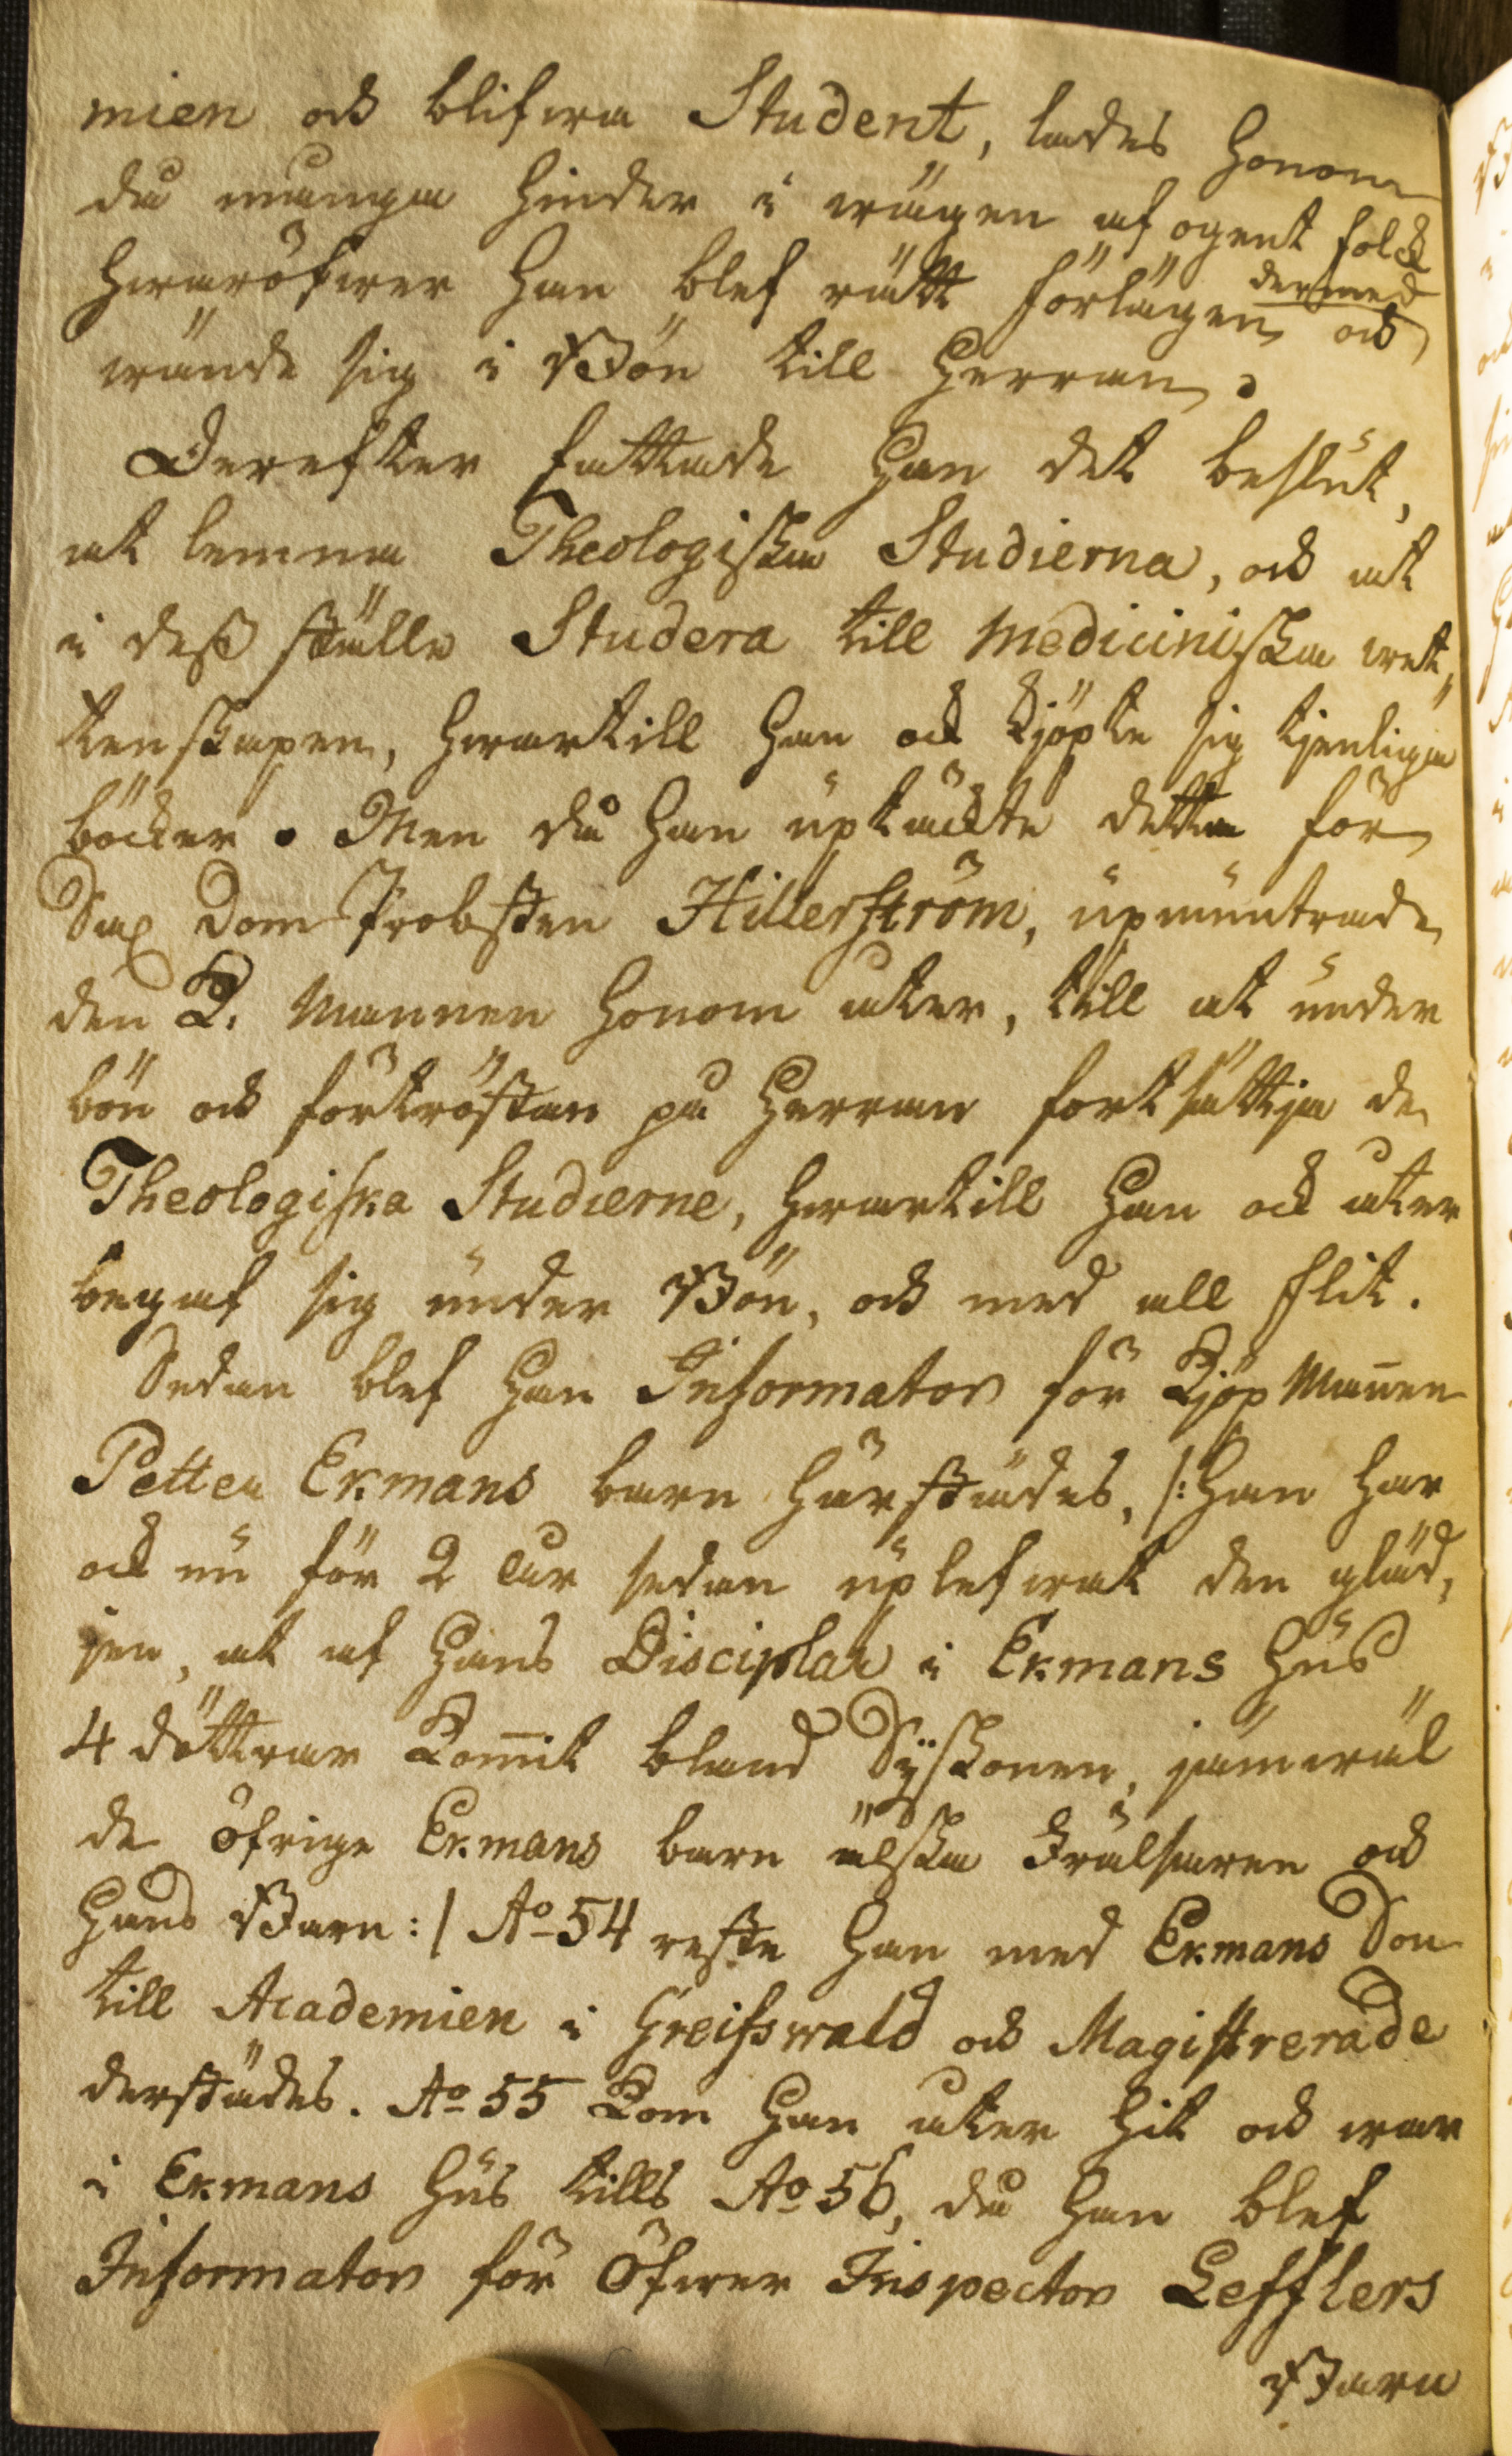 mien och blifwa Student, lades honom
då många hinder i wägen af ogent folck
hwaröfwer han blef rätt förlägen och
dermed
wände sig i Bön till Herran.
Derefter fattade han det beslut,
at lemna Theologiska Studierna, och at
i dess ställe Studera till Mediciniska wet,
tenskapen, hwartill han ock kjöpte sig tjenliga
böcker. Men då han uptäckte detta för
Sal Dom Probsten Hillerström, upmuntrade
den L. Mannen honom åter, till at under
bön och förtröstan på Herran fortsättja de
Theologiska Studierne, hwartill han ock åter
begaf sig under Bön, och med all flit.
Sedan blef han Informator för Kjöp Mannen
Petter Ekmans barn härstädes, /: han har
ock nu för 2 åar sedan uplefwat den gläd,
jen, at af hans Disciplar i Ekmans hus
4 döttrar Kom̅it bland Syskonen, jämwäl
de öfrige Ekmans barn älska Frälsaren och
hans Barn :/ Ao 54 reste han med Ekmans Son
till Academien i Greifswald och Magistrerade
derstädes. Ao 55 Kom han åter hit och war
i Ekmans hus tills Ao 56, då han blef
Informator för Öfwer Inspector Lefflers
Barn